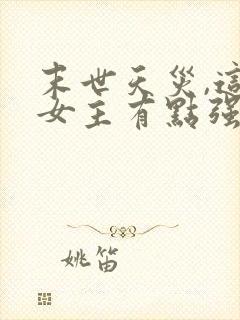 末世天災,這
女主有點强
姚笛